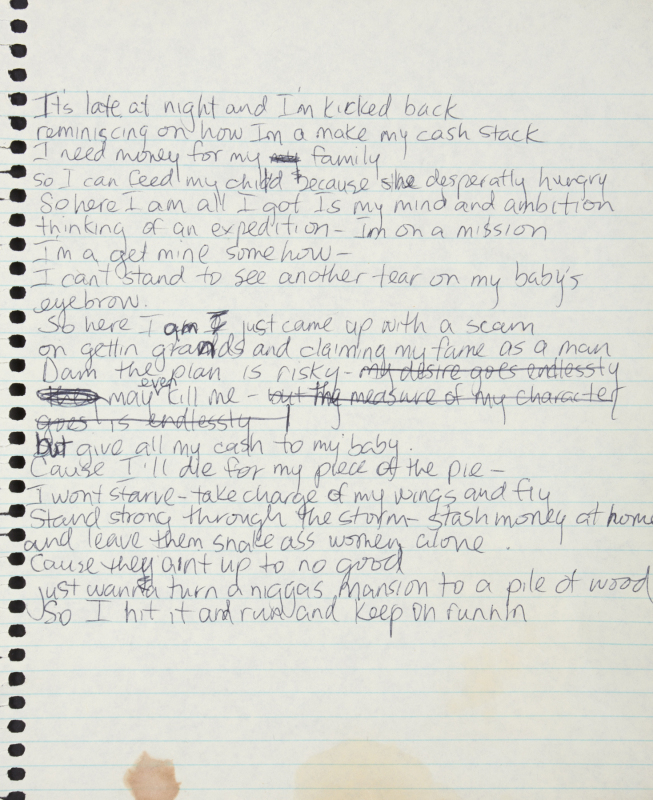 It's late at night and I'm kicked back
reminiscing on how Im a make my cash stack
I need money for my family
so I can feed my child because she desperatly hungry
So here I am all I got Is my mind and ambition
thinking of an expedition- Im on a mission
I'm a get mine somehow-
I can't stand to see another tear on my baby's
eyebrow.
So here I am I just came up with a scam
on gettin grands and claiming my fame as a man
Dam the plan is risky- my desire goes endlessty
may even kill me - but the measure of my character
goes is endlessty
but give all my cash to my baby.
Cause I'll die for my piece of the pie-
I wont starve-take charge of my wings and fly
Stand strong through the storm- stash money at home
and leave them snake ass women alone.
Cause they aint up to no good
just wanna turn a niggas mansion to a pile of wood
So I hit it and run and keep on runnin